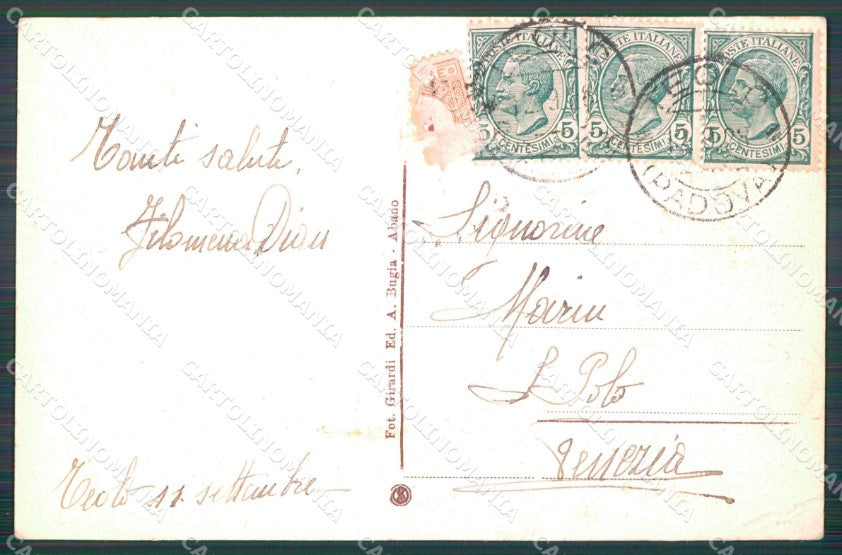 Tanti saluti.
Filomena Dian
Teolo 11 settembre
Fot. Girardi Ed. A. Bugia - Abano
POSTE ITALIANE
5 5
CENTESIMI
POSTE ITALIANE
5 5
CENTESIMI
POSTE ITALIANE
5 5
CENTESIMI
(PADOVA)
Signorine
Marin
S. Polo
Venezia
CARTOLINOMANIA